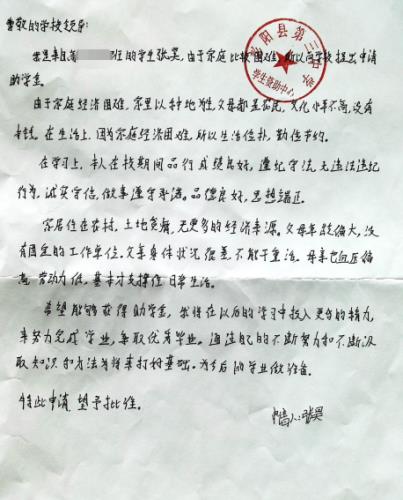 尊敬的学校领导:
我是来自 班的学生张昊,由于家庭比较困难,所以向学校提出申请
助学金。
由于家庭经济困难,家里以种地为生,父母都是农民,文化水平不高,没有
本钱。在生活上,因为家庭经济困难,所以生活俭朴,勤俭节约。
在学习上,本人在校期间品行成绩良好,遵纪守法,无违法违纪
行为,诚实守信,做事遵守承诺。品德良好,思想端正。
家居住在农村,土地贫瘠,无更多的经济来源。父母年龄偏大,没
有固定的工作单位。父亲身体状况很差,不能干重活。母亲血压偏
高,劳动力低,基本才支撑住日常生活。
希望能够获得助学金,我将在以后的学习中投入更多的精力,
来努力完成学业,争取优秀毕业。通过自己的不断努力和不断汲
取知识和方法为将来打好基础。为今后的学业做准备。
特此申请 望予批准。
申请人:张昊
阳县第三中学
学生资助中心